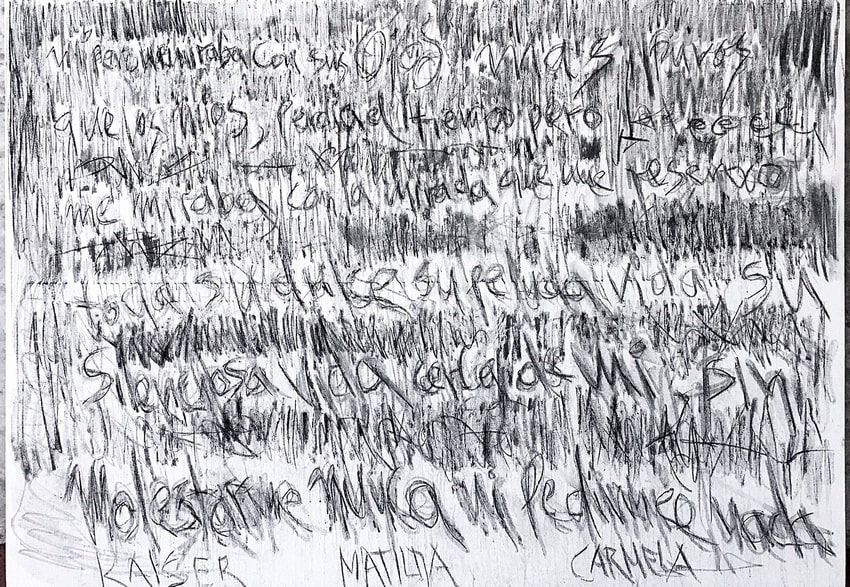 mi perro me miraba con sus ojos mas puros
que los mios, perdia el tiempo pero
me miraba con la mirada que me reservo
toda su dulce su peluda vida su
silenciosa vida cerca de mi, sin
molestarme nunca ni pedirme nada
KAISER MATILDA CARMELA